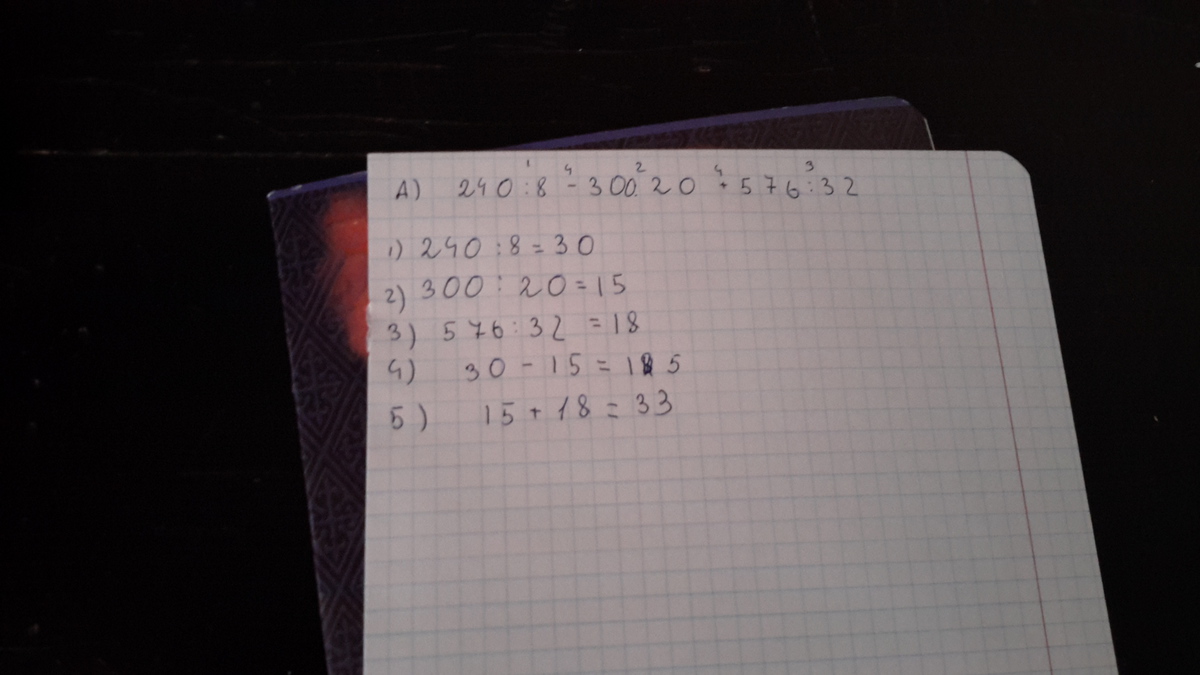 1 4 2 4 3
А) 240 : 8 - 300 : 20 + 576 : 32
1) 240 : 8 = 30
2) 300 : 20 = 15
3) 576 : 32 = 18
4) 30 - 15 = 15
5) 15 + 18 = 33